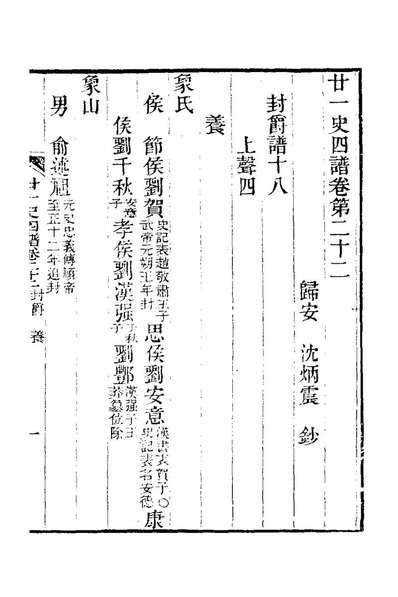 廿一史四譜卷第二十二
歸安 沈炳震 鈔
封爵譜十八
上聲四
養
象氏
侯 節侯劉賀史記表趙敬肅王子武帝元朔三年封 思侯劉安意漢書表賀子〇史記表名安德 康
侯劉千秋安意子 孝侯劉漢强千秋子 劉鄷漢强子王莽篡位除
象山
男 俞述祖元史忠義傳順帝至正十二年追封
廿一史四譜卷二十二 封爵 養 一